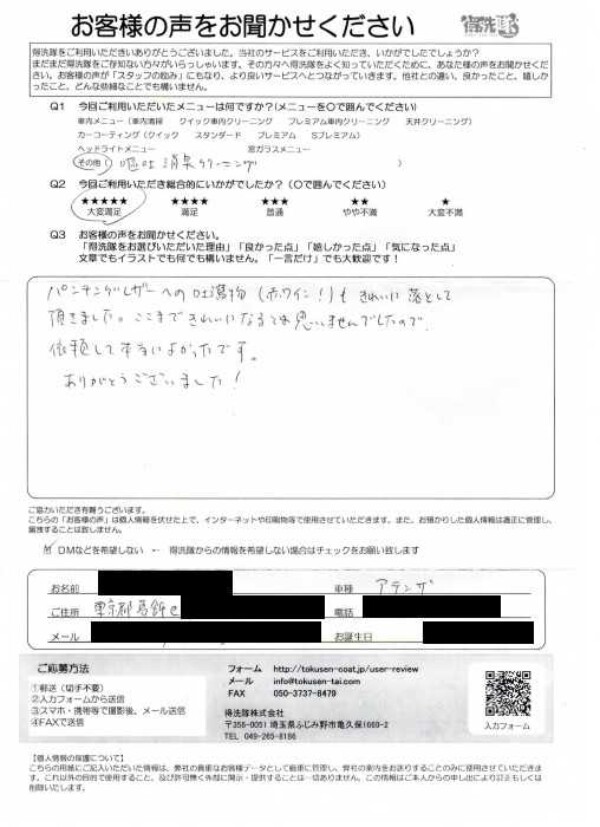 お客様の声をお聞かせください
得洗隊
得洗隊をご利用いただきいありがとうございました。当社のサービスをご利用いただき、いかがでしたでしょうか？
まだまだ得洗隊をご存知ない方々がいらっしゃいます。その方々へ得洗隊をよく知っていただくために、あなた様の声をお聞かせください。
お客様の声が「スタッフの励み」にもなり、より良いサービスへとつながっていきます。他社との違い、良かったこと、嬉しかったこと、どんな些細なことでも構いません。
Q1 今回ご利用いただいたメニューは何ですか？（メニューを〇で囲んでください）
車内メニュー（車内清掃 クイック車内クリーニング プレミアム車内クリーニング 天井クリーニング）
カーコーティング（クイック スタンダード プレミアム Sプレミアム）
ヘッドライトメニュー 窓ガラスメニュー
その他（ 嘔吐消臭クリーニング ）
Q2 今回ご利用いただき総合的にいかがでしたか？（〇で囲んでください）
★★★★★ ★★★★ ★★★ ★★ ★
大変満足 満足 普通 やや不満 大変不満
Q3 お客様の声をお聞かせください。
「得洗隊をお選びいただいた理由」「良かった点」「嬉しかった点」「気になった点」
文章でもイラストでも何でも構いません。「一言だけ」でも大歓迎です！
パンチングレザーへの吐瀉物（赤ワイン！）もきれいに落として
頂きました。ここまできれいになるとは思いませんでしたので、
依頼して本当によかったです。
ありがとうございました！
ご協力いただき有難うございます。
こちらの「お客様の声」は個人情報を伏せた上で、インターネットや印刷物等で使用させていただきます。また、お預かりした個人情報は適正に管理し、
漏洩することは致しません。
DMなどを希望しない ← 得洗隊からの情報を希望しない場合はチェックをお願い致します
お名前 車種 アテンザ
ご住所 東京都葛飾区 電話
メール お誕生日
ご応募方法
①郵送（切手不要）
②入力フォームから送信
③スマホ・携帯等で撮影後、メール送信
④FAXで送信
フォーム http://tokusen-coat.jp/user-review
メール info@tokusen-tai.com
FAX 050-3737-8479
得洗隊株式会社
〒356-0051 埼玉県ふじみ野市亀久保1669-2
TEL 049-265-8186
入力フォーム
【個人情報の保護について】
こちらの用紙にご記入いただいた情報は、弊社の貴重なお客様データとして厳重に管理し、弊社の案内をお送りすることのみに使用させていただきます。
これ以外の目的で使用すること、及び許可無く外部に開示・提供することは一切ありません。この情報はご本人からの申し出により訂正もしくは
削除いたします。